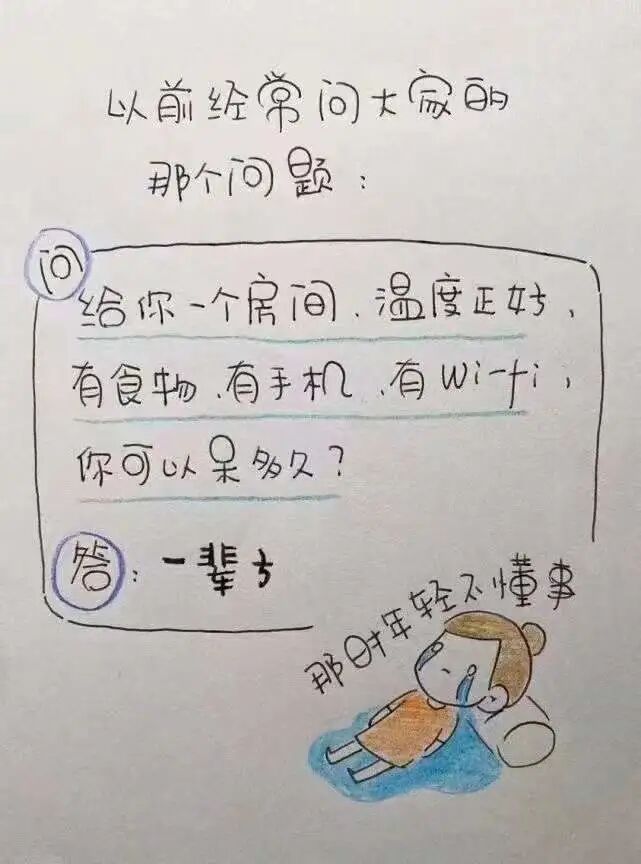 以前经常问大家的
那个问题：
问
给你一个房间、温度正好、
有食物、有手机、有Wi-fi，
你可以呆多久？
答：一辈子
那时年轻不懂事